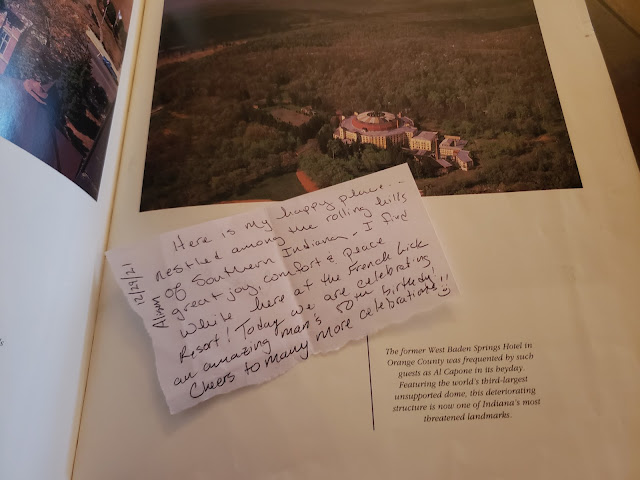 Here is my happy place...
nestled among the rolling hills
of Southern Indiana - I find
great joy, comfort & peace
while here at the French Lick
Resort! Today we are celebrating
an amazing man's 50th birthday!!
Cheers to many more celebrations!
Alison 12/29/21
The former West Baden Springs Hotel in
Orange County was frequented by such
guests as Al Capone in its heyday.
Featuring the world's third-largest
unsupported dome, this deteriorating
structure is now one of Indiana's most
threatened landmarks.